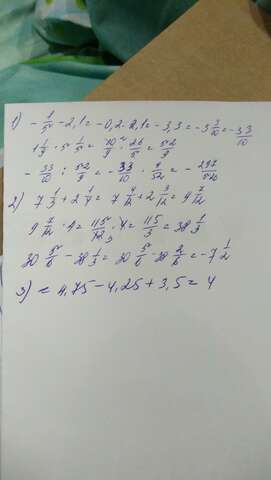 1) - 1/5 - 2,1 = -0,2 - 2,1 = - 3,3 = -3 3/10 = - 33/10
1 1/9 · 5 1/5 = 10/9 · 26/5 = 52/9
- 33/10 : 52/9 = - 33/10 · 9/52 = - 297/520
2) 7 1/3 + 2 1/4 = 7 4/12 + 2 3/12 = 9 7/12
9 7/12 · 4 = 115/12 · 4 = 115/3 = 38 1/3
30 5/6 - 38 1/3 = 30 5/6 - 38 2/6 = -7 1/2
3) = 4,75 - 4,25 + 3,5 = 4